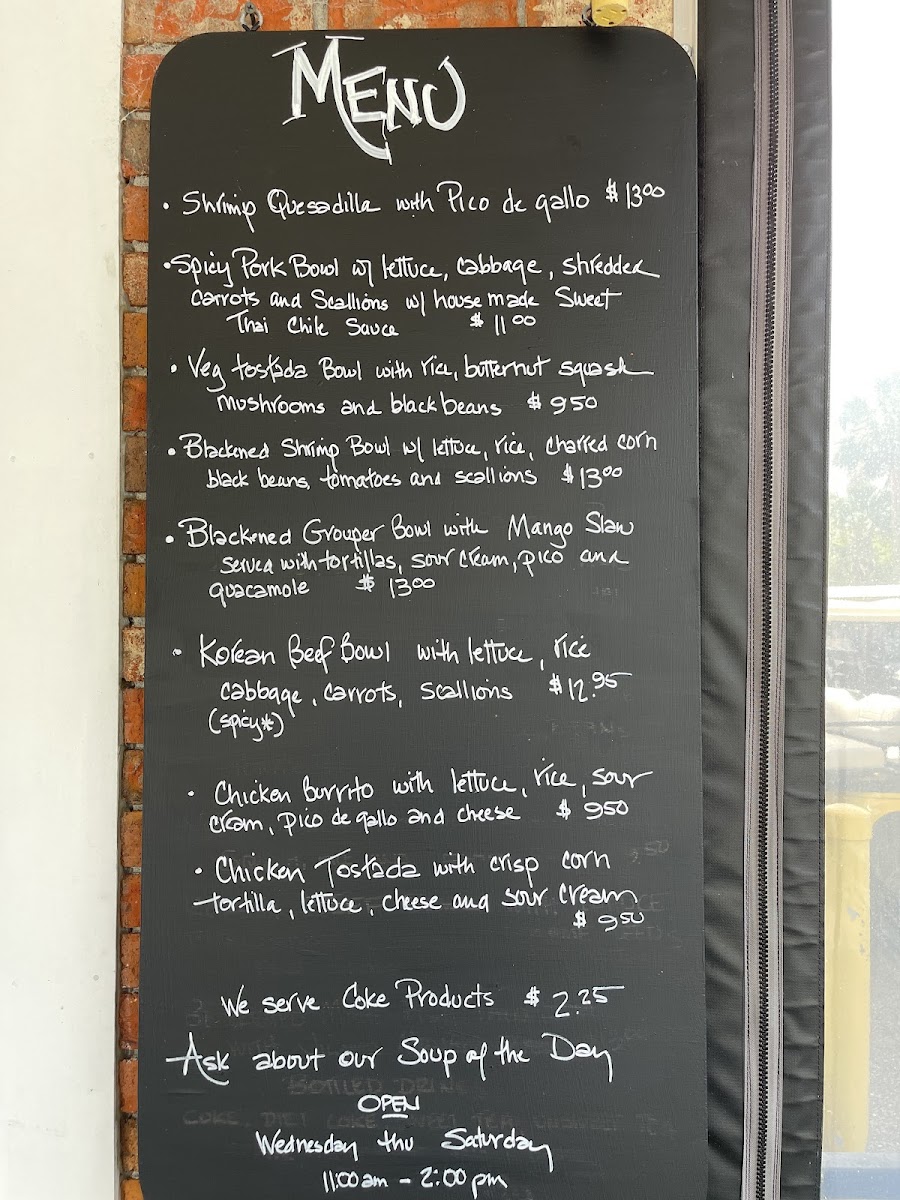 MENU
• Shrimp Quesadilla with Pico de gallo $13.00
• Spicy Pork Bowl w/ lettuce, cabbage, shredded
carrots and Scallions w/ house made Sweet
Thai Chile Sauce $11.00
• Veg tostada Bowl with rice, butternut squash
mushrooms and black beans $9.50
• Blackened Shrimp Bowl w/ lettuce, rice, charred corn
black beans, tomatoes and scallions $13.00
• Blackened Grouper Bowl with Mango Slaw
served with tortillas, sour cream, pico and
guacamole $13.00
• Korean Beef Bowl with lettuce, rice
cabbage, carrots, scallions $12.95
(spicy*)
• Chicken Burrito with lettuce, rice, sour
cream, pico de gallo and cheese $9.50
• Chicken Tostada with crisp corn
tortilla, lettuce, cheese and sour cream
$9.50
We serve Coke Products $2.25
Ask about our Soup of the Day
OPEN
Wednesday thu Saturday
11:00 am - 2:00 pm